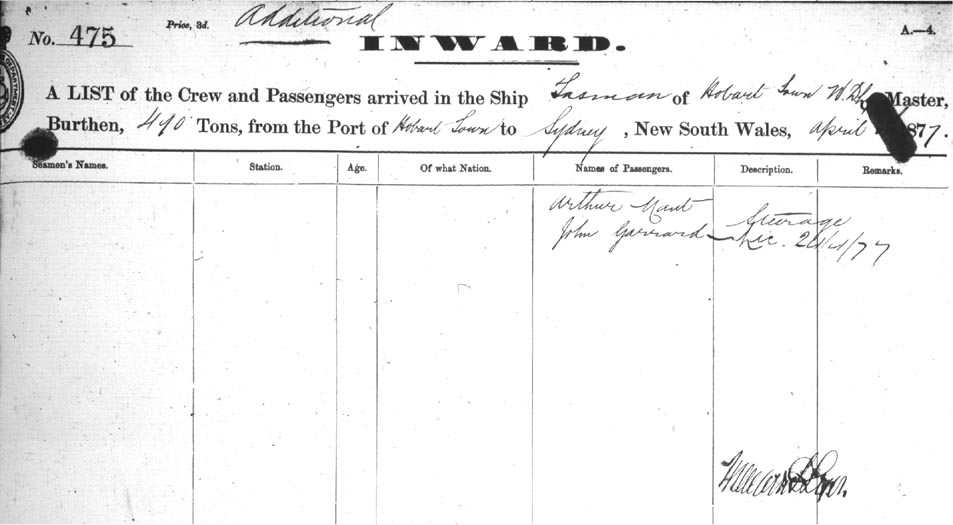 Additional
No. 475 Price, 3d. INWARD. A.—4.
A LIST of the Crew and Passengers arrived in the Ship Tasman of Hobart Town Master,
Burthen, 490 Tons, from the Port of Hobart Town to Sydney, New South Wales, april 1877.
Seamen's Names. Station. Age. Of what Nation. Names of Passengers. Description. Remarks.
Arthur
John Garrard Steerage